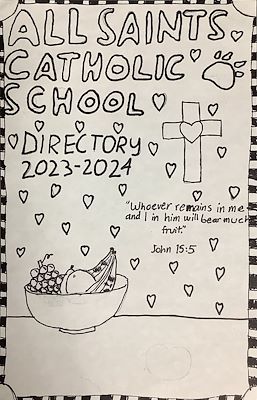 ALL SAINTS
CATHOLIC
SCHOOL
DIRECTORY
2023-2024
"Whoever remains in me
and I in him will bear much
fruit."
John 15:5